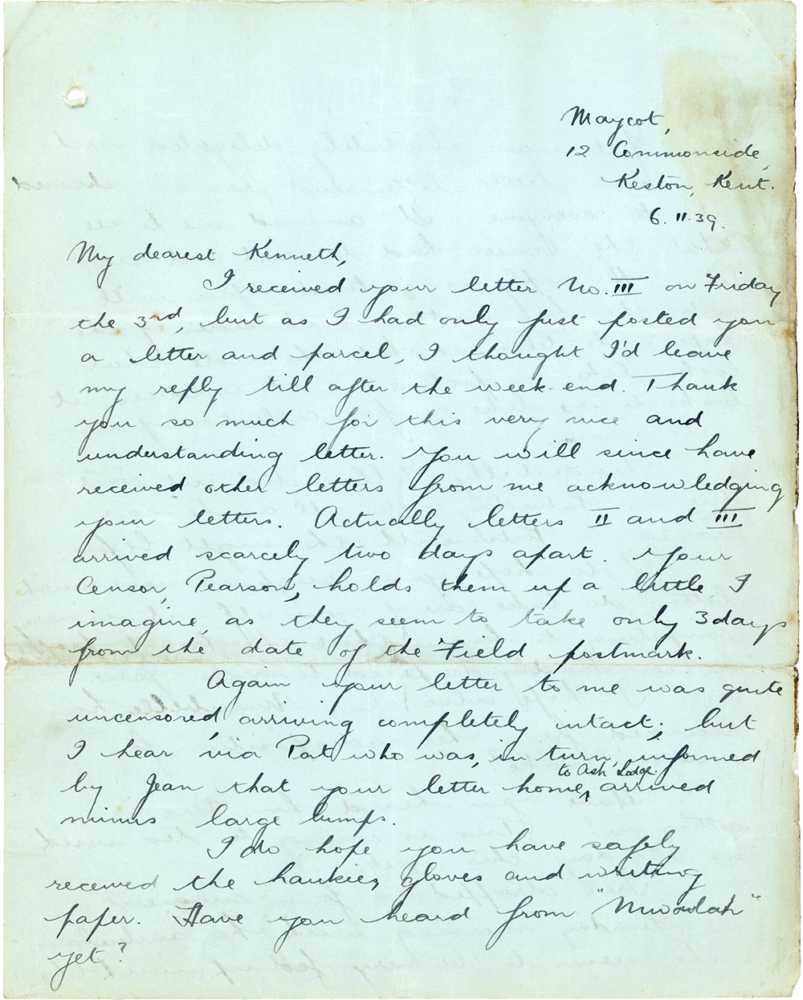 Maycot,
12 Commonside,
Keston, Kent.
6.11.39.
My dearest Kenneth,
I received your letter No. III on Friday
the 3rd, but as I had only just posted you
a letter and parcel, I thought I'd leave
my reply till after the week-end. Thank
you so much for this very nice and
understanding letter. You will since have
received other letters from me acknowledging
your letters. Actually letters II and III
arrived scarcely two days apart. Your
Censor, Pearson, holds them up a little I
imagine, as they seem to take only 3 days
from the date of the Field postmark.
Again your letter to me was quite
uncensored, arriving completely intact; but
I hear via Pat who was, in turn, informed
by Jean that your letter home, to Ash Lodge, arrived
minus large lumps.
I do hope you have safely
received the hankies, gloves and writing
paper. Have you heard from
yet?